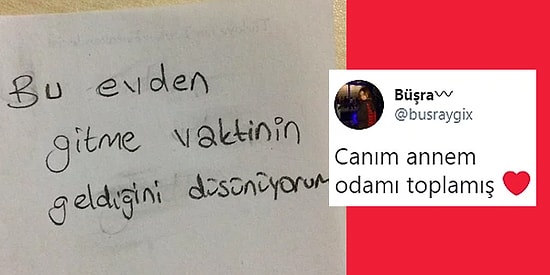 Bu evden
gitme vaktinin
geldiğini düşünüyorum
Büşra
@busraygix
Canım annem
odamı toplamış ❤